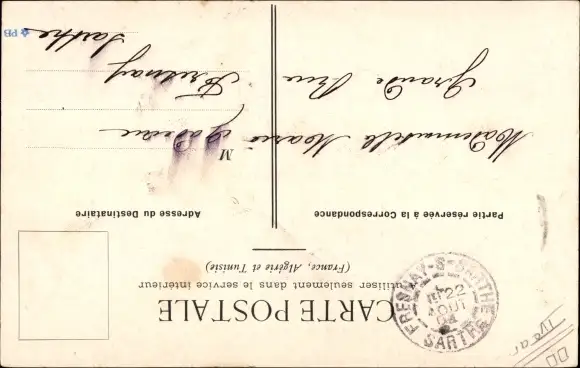 CARTE POSTALE
A utiliser seulement dans le service intérieur
(France, Algérie et Tunisie)
Partie réservée à la Correspondance
Adresse du Destinataire
Mademoiselle Marie
M
Grande Rue
Fresnay
Sarthe
FRESNAY-S-SARTHE
22
AOUT
04
SARTHE
PB